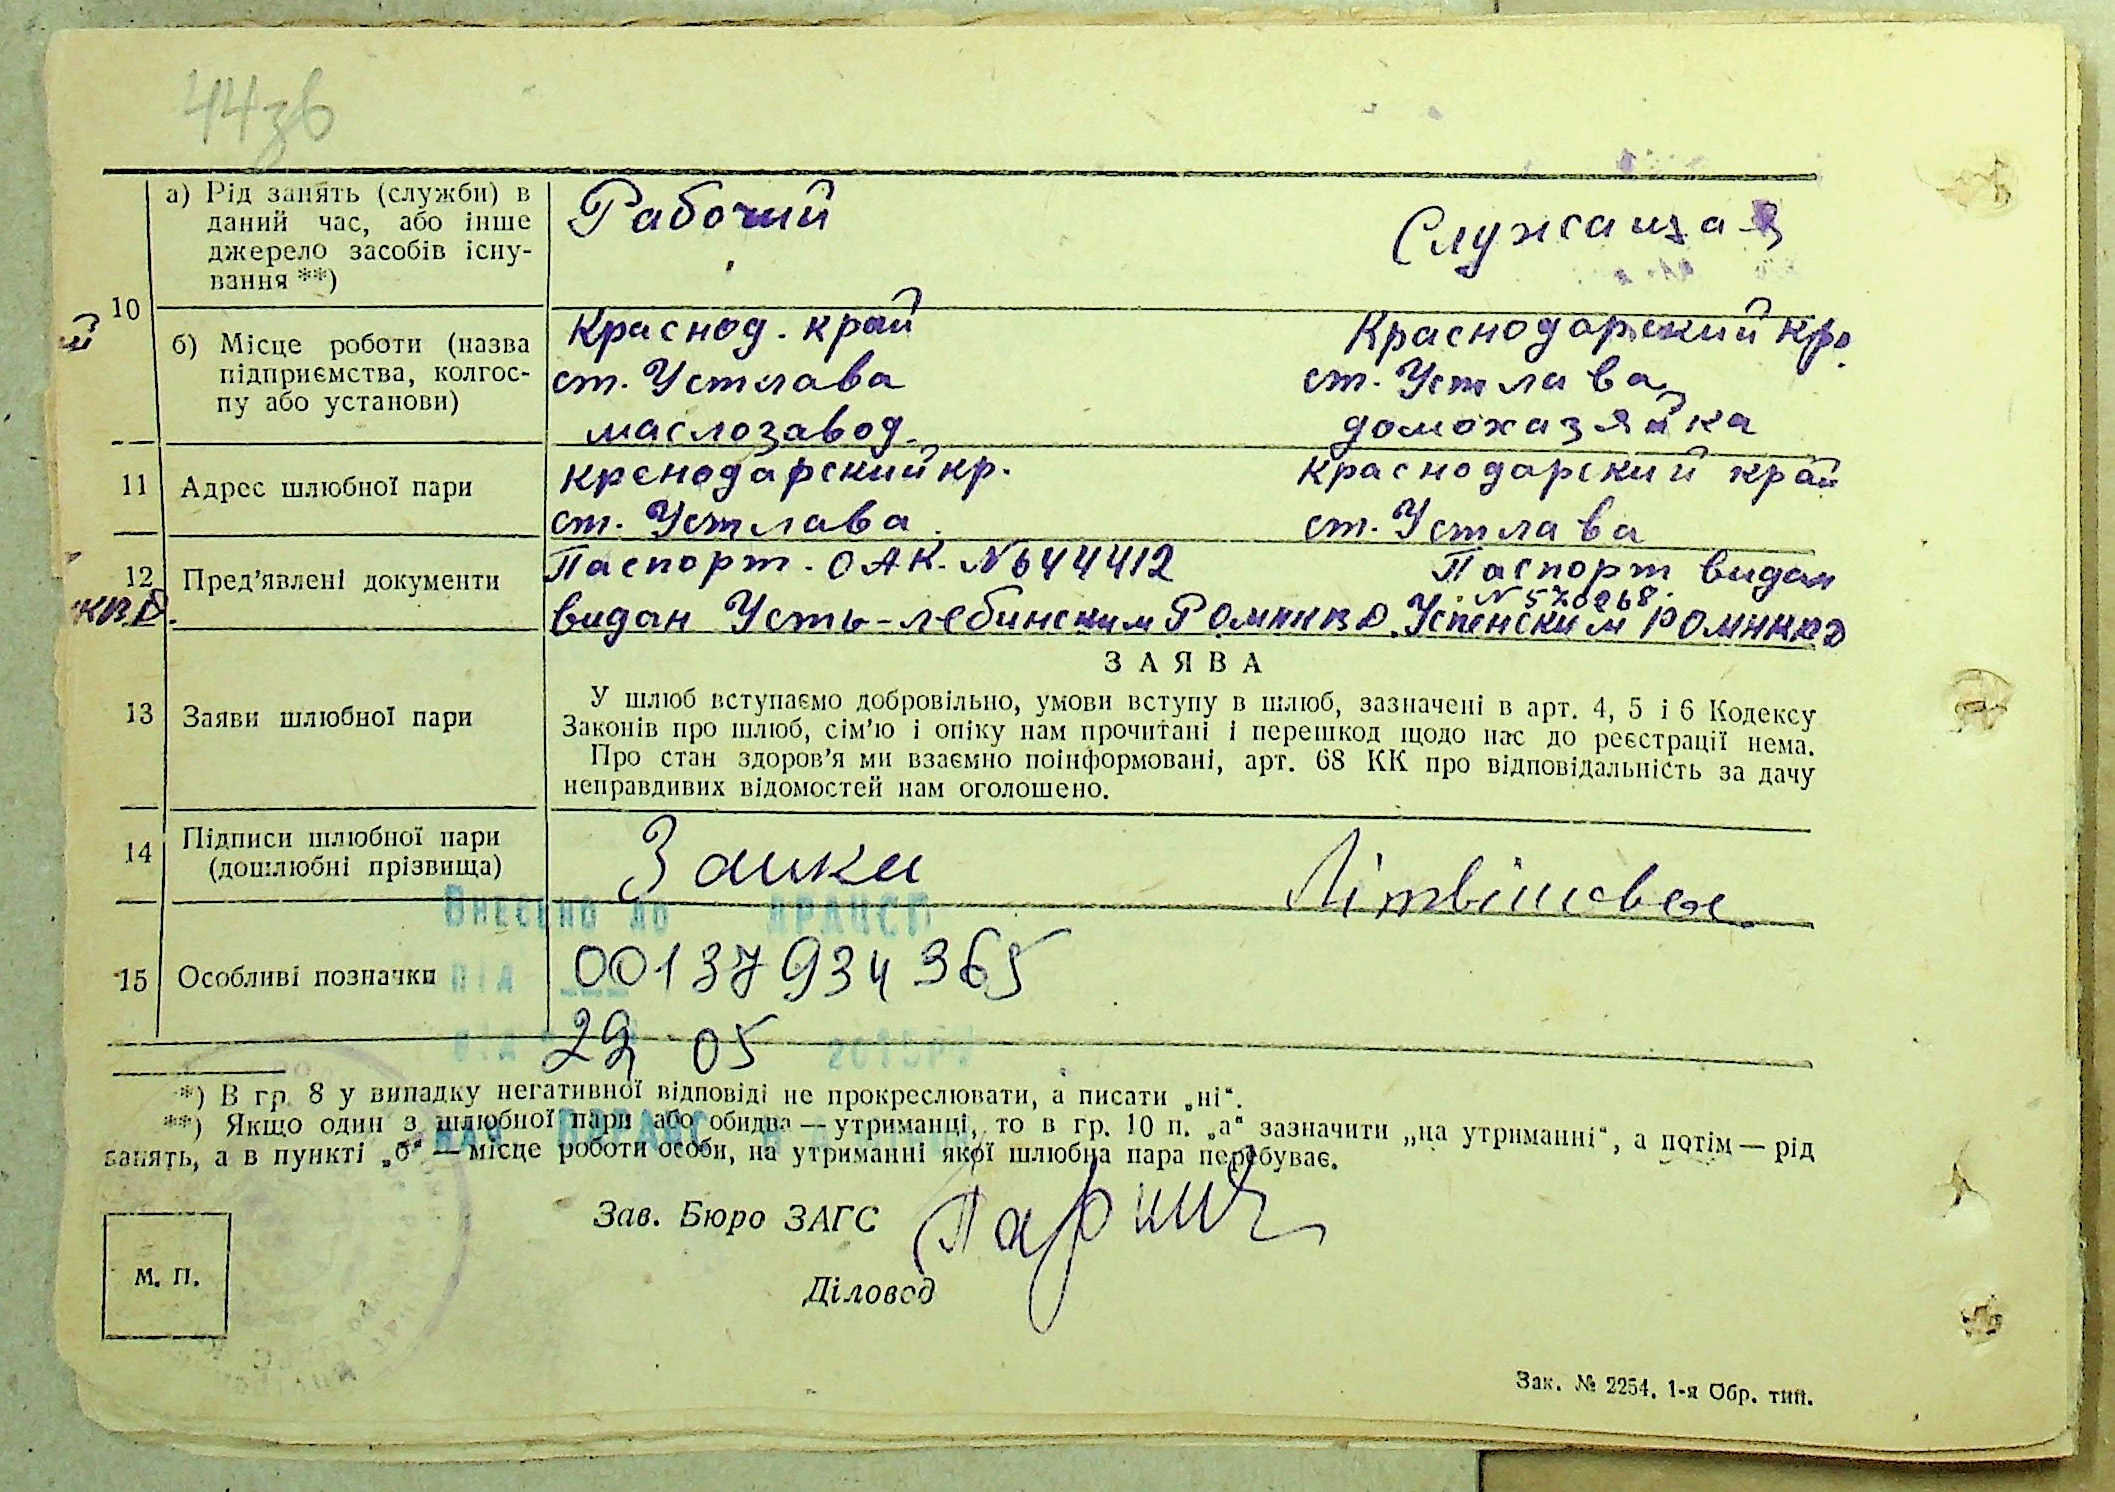 44зв
а) Рід занять (служби) в
даний час, або інше
джерело засобів існу-
вання **)
Рабочий
Служащая
10
б) Місце роботи (назва
підприємства, колгос-
пу або установи)
Краснод. край
ст. Устлава
маслозавод.
Краснодарский кра
ст. Устлава
домохазяйка
11 Адрес шлюбної пари
крснодарский кр.
ст. Устлава
краснодарский край
ст. Устлава
12 Пред’явлені документи
Паспорт. ОАК. № 644412
видан Усть-лебинским РОМНКВД.
Паспорт видан
N 570268.
Успенским РОМНКВД
КВД.
13 Заяви шлюбної пари
ЗАЯВА
У шлюб вступаємо добровільно, умови вступу в шлюб, зазначені в арт. 4, 5 і 6 Кодексу
Законів про шлюб, сім’ю і опіку нам прочитані і перешкод щодо нас до реєстрації нема.
Про стан здоров’я ми взаємно поінформовані, арт. 68 КК про відповідальність за дачу
неправдивих відомостей нам оголошено.
14 Підписи шлюбної пари
(дошлюбні прізвища)
Заика
Літвінова
Внесено до ДРАЦСГ
15 Особливі позначки
під 00137934365
від 29 05
*) В гр. 8 у випадку негативної відповіді не прокреслювати, а писати „ні“.
**) Якщо один з шлюбної пари або обидва — утриманці, то в гр. 10 п. „а“ зазначити „на утриманні“, а потім — рід
занять, а в пункті „б“ — місце роботи особи, на утриманні якої шлюбна пара перебуває.
Зав. Бюро ЗАГС
Діловод
М. П.
Зак. № 2254. 1-я Обр. тип.